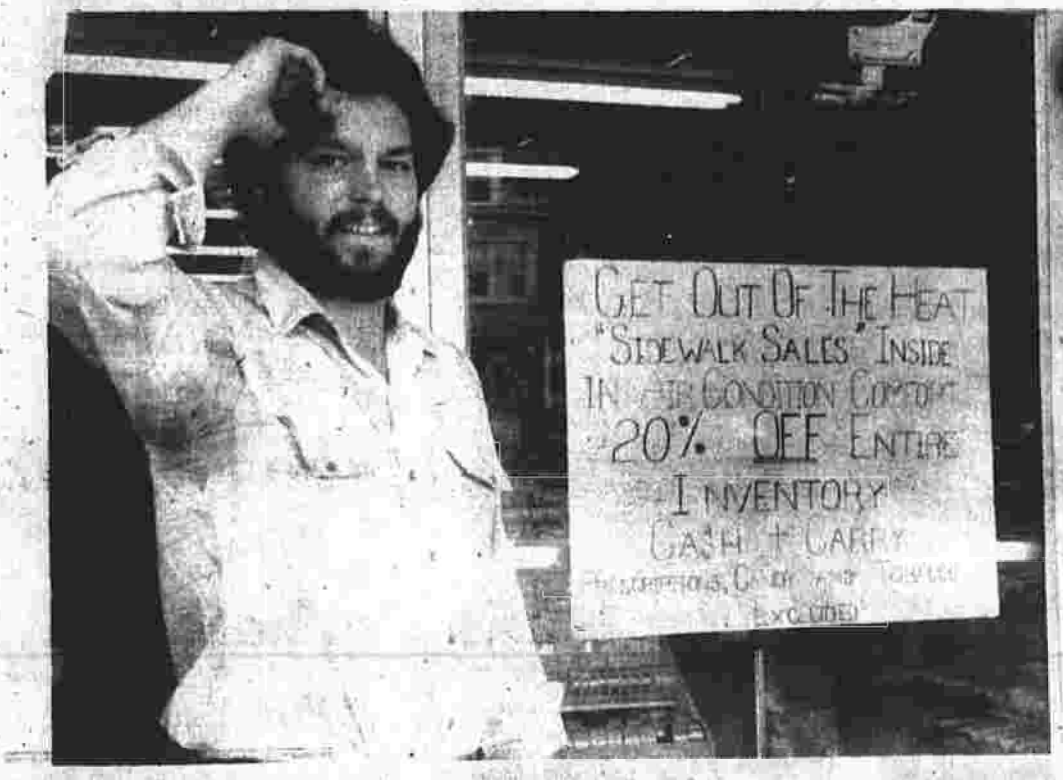 GET OUT OF THE HEAT
"SIDEWALK SALES" INSIDE
IN AIR CONDITION COMFORT
20% OFF ENTIRE
INVENTORY
CASH + CARRY
PRESCRIPTIONS, CANDY AND TOBACCO
EXCLUDED